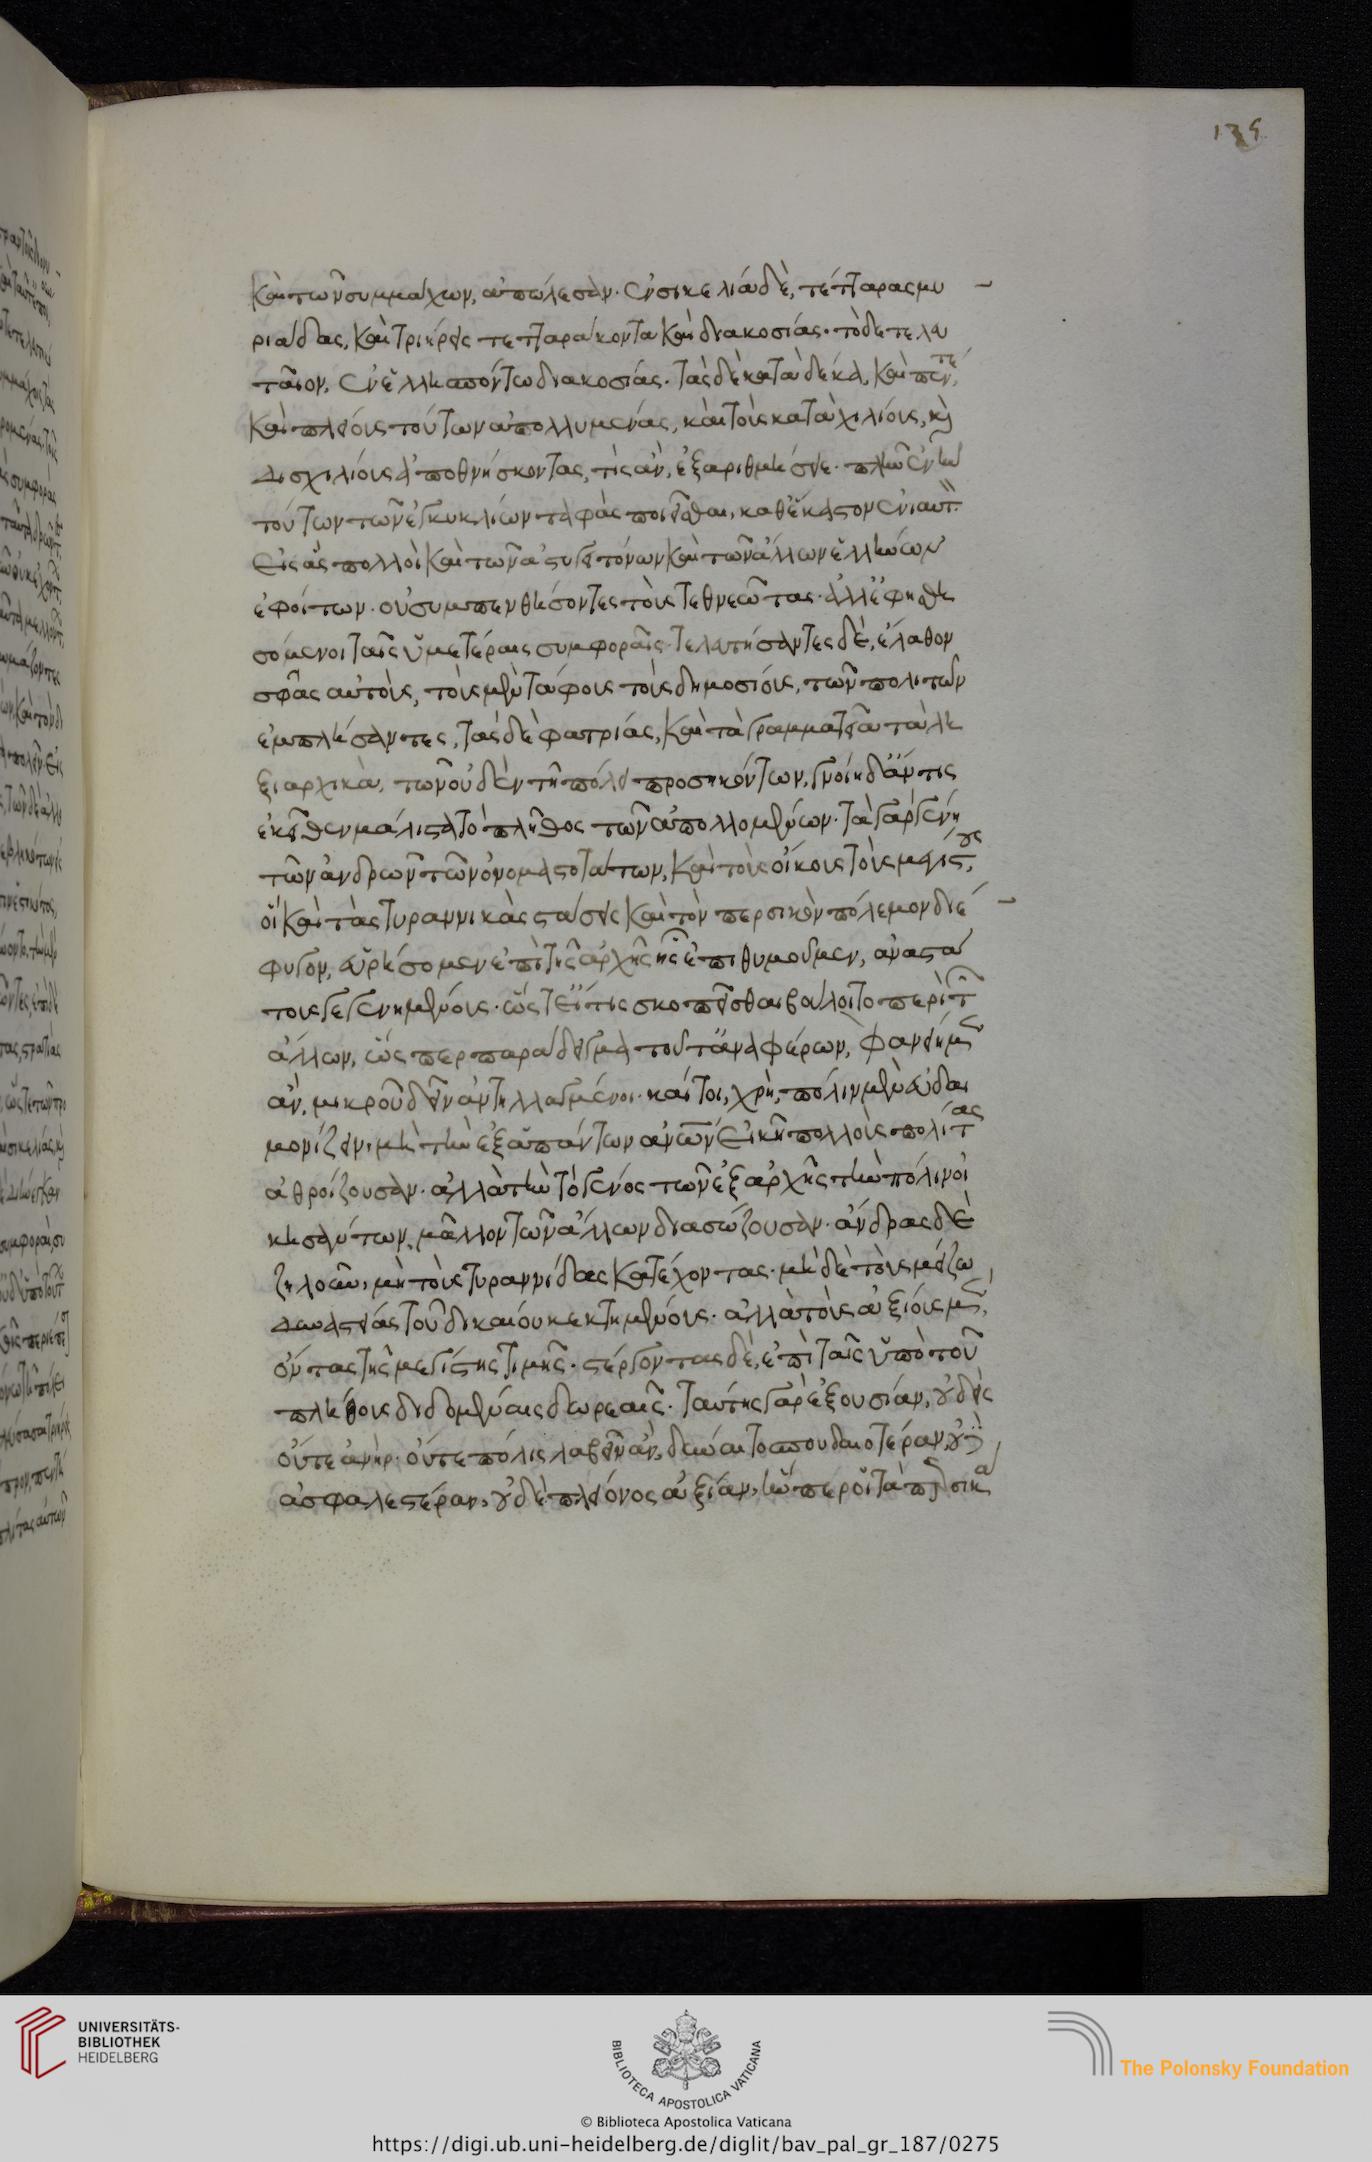 135
καὶ τῶν συμμάχων, ἀπώλεσαν. ἐν σικελία δὲ, τέτταρας μυ
ριάδας, καὶ τριήρεις τετταράκοντα καὶ διακοσίας. τὸ δὲ τελευ
ταῖον, ἐν ἑλλησπόντω διακοσίας. τὰς δὲ κατὰ δέκα, καὶ πέντε,
καὶ πλείους τούτων ἀπολλυμένας, καὶ τοὺς κατὰ χιλίους, καὶ
δισχιλίους ἀποθνήσκοντας, τίς ἂν, ἐξαριθμήσειε. πλὴν ἓν ἦν
τούτων τῶν ἐγκυκλίων ταφὰς ποιεῖσθαι, καθ' ἕκαστον ἐνιαυτ
εἰς ἃς πολλοὶ καὶ τῶν ἀστυγειτόνων καὶ τῶν ἄλλων ἑλλήνων
ἐφοίτων. οὐ συμπενθήσοντες τοὺς τεθνεῶτας. ἀλλ' ἐφησθη
σόμενοι ταῖς ὑμετέραις συμφοραῖς. τελευτήσαντες δὲ, ἔλαθον
σφᾶς αὐτοὺς, τοὺς μὲν τάφους τοὺς δημοσίους, τῶν πολιτῶν
ἐμπλήσαντες, τὰς δὲ φατρίας, καὶ τὰ γραμματεῖα τὰ λη
ξιαρχικὰ, τῶν οὐδὲν τῆ πόλει προσηκόντων, γνοίη δ' ἄν τις
ἐκεῖθεν μάλιστα τὸ πλῆθος τῶν ἀπολλομένων. τὰ γὰρ γένη
τῶν ἀνδρῶν τῶν ὀνομαστοτάτων, καὶ τοὺς οἴκους τοὺς μεγίστους,
οἳ καὶ τὰς τυραννικὰς στάσεις καὶ τὸν περσικὸν πόλεμον διέ
φυγον, εὑρήσομεν ἐπὶ τῆς ἀρχῆς ἧς ἐπιθυμοῦμεν, ἀναστά
τους γεγενημένους. ὥστ' εἴ τις σκοπεῖσθαι βούλοιτο περὶ τῶν
ἄλλων, ὥσπερ παράδειγμα τοῦτ' ἀναφέρων, φανείημεν
ἂν, μικροῦ δεῖν ἀντηλλαγμένοι. καίτοι, χρὴ, πόλιν μὲν εὐδαι
μονίζειν, μὴ τὴν ἐξ ἁπάντων ἀνθρώπων εἰκῆ πολλοὺς πολίτας
ἀθροίζουσαν. ἀλλὰ τὴν τὸ γένος τῶν ἐξ ἀρχῆς τὴν πόλιν οἰ
κησάντων, μᾶλλον τῶν ἄλλων διασώζουσαν. ἄνδρας δὲ
ζηλοῦν, μὴ τοὺς τυραννίδας κατέχοντας. μὴ δὲ τοὺς μείζω
δυναστείας τοῦ δικαίου κεκτημένους. ἀλλὰ τοὺς ἀξίους μὲν,
ὄντας τῆς μεγίστης τιμῆς. στέργοντας δὲ, ἐπὶ ταῖς ὑπὸ τοῦ
πλήθους διδομέναις δωρεαῖς. ταύτης γὰρ ἐξουσίαν, οὐδεὶς
οὔτε ἀνὴρ. οὔτε πόλις λαβεῖν ἂν, δύναιτο σπουδαιοτέραν, οὐδὲ
ἀσφαλεστέραν, οὐδὲ πλείονος ἀξίαν, ἥνπερ οἱ τὰ περσικὰ
UNIVERSITÄTS-
BIBLIOTHEK
HEIDELBERG
BIBLIOTECA APOSTOLICA VATICANA
The Polonsky Foundation
© Biblioteca Apostolica Vaticana
https://digi.ub.uni-heidelberg.de/diglit/bav_pal_gr_187/0275